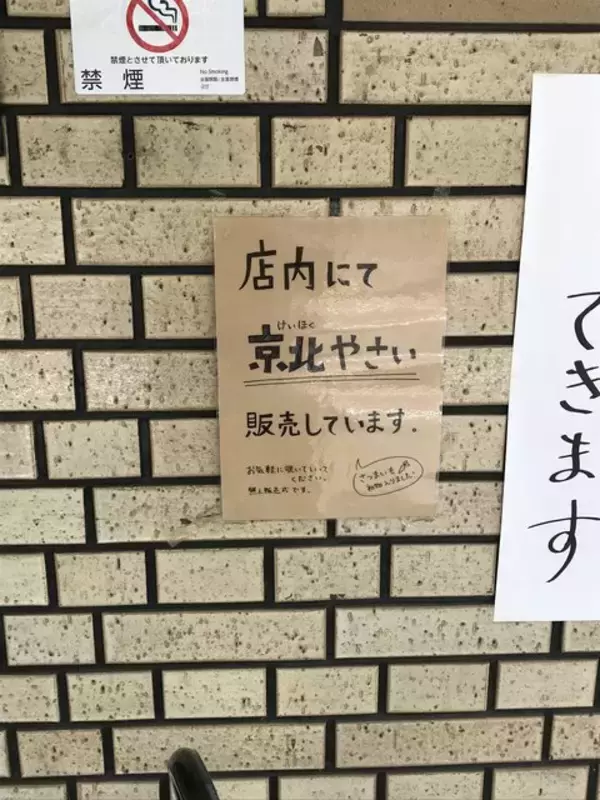 禁煙とさせて頂いております
禁 煙
No Smoking
店内にて
けいほく
京北やさい
販売しています.
お気軽に覗いていって
ください。
無人販売式です。
さつまいも
できます